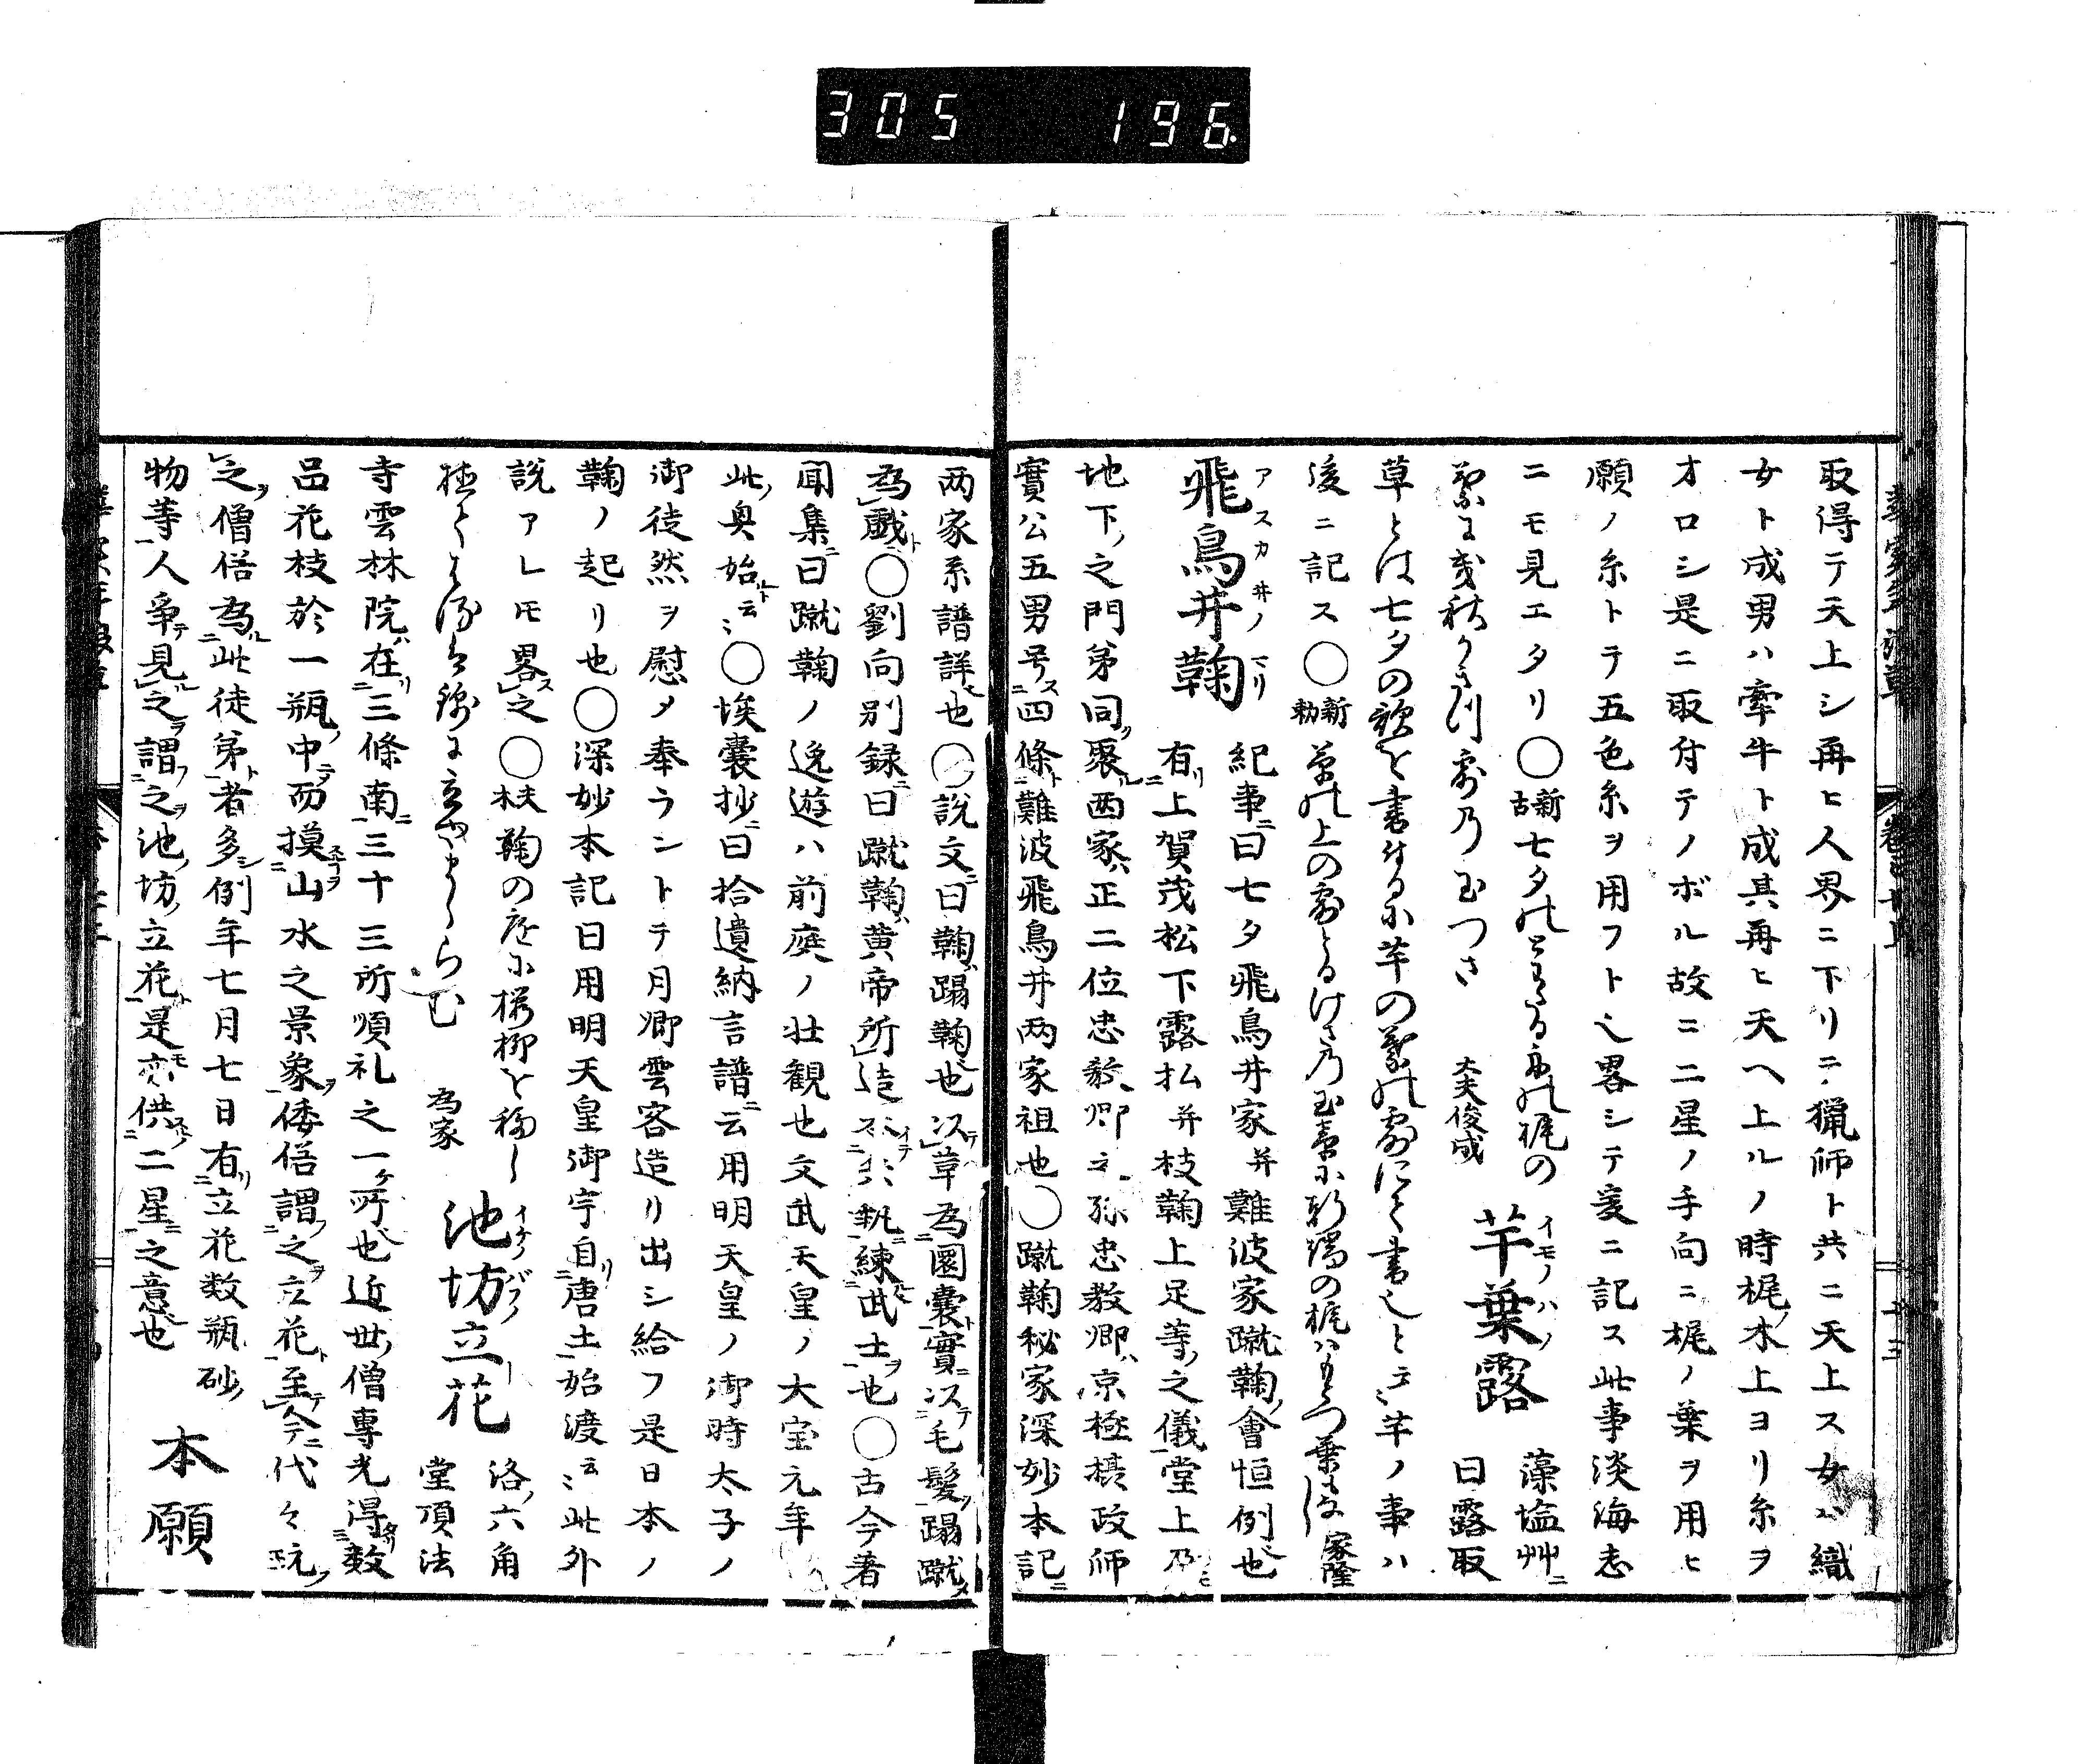 305 196
取得テ天上シ再ヒ人界ニ下リニ猟師ト共ニ天上ス女ハ織
女ト成男ハ牽牛ト成其再ヒ天ヘ上ルノ時梶ノ木上ヨリ糸ヲ
オロシ是ニ取付テノボル故ニ二星ノ手向ニ梶ノ葉ヲ用ヒ
願ノ糸トテ五色糸ヲ用フト也畧シテ爰ニ記ス此事淡海志
ニモ見エタリ○新古七夕のとわたる舟の梶の
葉に幾秋かきつ露の玉つさ 大夫俊成
芋葉露 イモノハノ 藻塩艸ニ
曰露取
草とは七夕の歌を書けるに芋の葉の露にて書也と云芋ノ事ハ
後ニ記ス○新勅 草の上の露とるけさの玉章に軒端の梶はもとつ葉もなし 家隆
飛鳥井鞠 アスカ井ノマリ 紀事ニ曰七夕飛鳥井家并難波家蹴鞠ノ會恒例也
有リ上賀茂松下露払并枝鞠上足等ノ之儀堂上乃
地下ノ之門弟同ク聚ル両家ハ正二位忠教卿之孫忠教卿ハ京極摂政師
實公五男号ス四條ト難波飛鳥井両家祖也○蹴鞠秘家深妙本記ニ
両家系譜詳也○説文ニ曰鞠ハ蹋鞠也以テ草為園嚢ト實ニ以テ毛髪ヲ蹋蹴メ
為戯ト○劉向別録ニ曰蹴鞠ハ黄帝所造 執練武士ヲ也○古今著
聞集ニ曰蹴鞠ノ逸遊ハ前庭ノ壮観也文武天皇ノ大宝元年
此ノ奥始ルト云〻○埃嚢抄ニ曰拾遺納言譜ニ云用明天皇ノ御時太子ノ
御徒然ヲ慰メ奉ラントテ月卿雲客造リ出シ給フ是日本ノ
鞠ノ起リ也○深妙本記曰用明天皇御宇自リ唐土始渡云〻此外
説アレモ畧ス之○夫木 鞠の庭に桜柳を移し
植て 錦に立やまらむ 為家
池坊立花 イケノバフノ 洛ノ六角
堂頂法
寺雲林院ハ在リ三條南ニ三十三所順礼之一ケ所也近世ノ僧專光得タリ數
品花枝於一瓶ノ中ニ而摸山水之景象ヲ倭俗謂フ之ヲ立花ト至テ今ニ代々玩フ
之ヲ僧俗為ル此徒弟ト者多シ例年七月七日有リ立花数瓶砂ノ
物等人争テ見ル之ヲ謂フ之ヲ池ノ坊ノ立花ト是亦モ供二星ニ之意也 本願